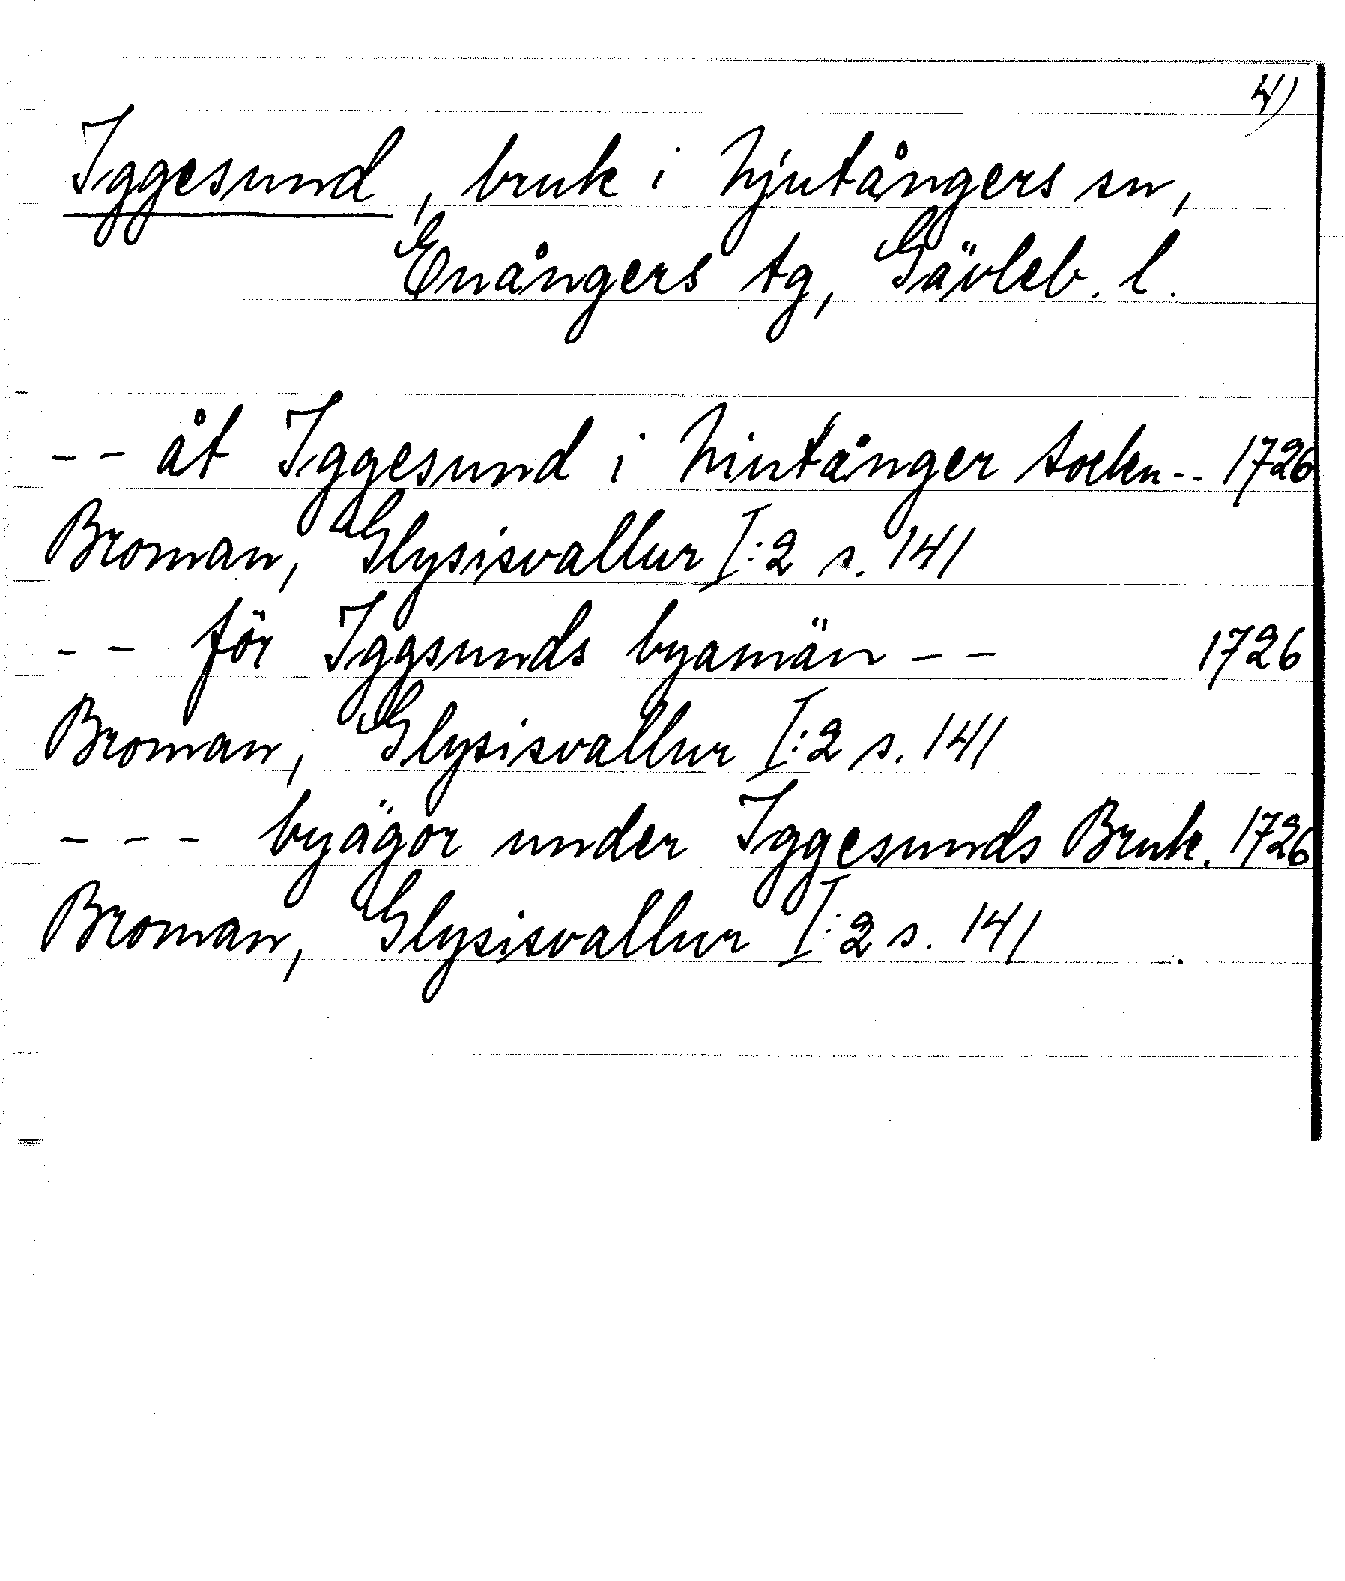 4)
Iggesund, bruk i Njutångers sn,
Enångers tg, Gävleb. l.
-- åt Iggesund i Niutånger Socken -- 1726
Broman, Glysisvallur I:2 s. 141
-- för Iggsunds byamän -- 1726
Broman, Glysisvallur I:2 s. 141
--- byägor under Iggesunds Bruk. 1726
Broman, Glysisvallur I:2 s. 141